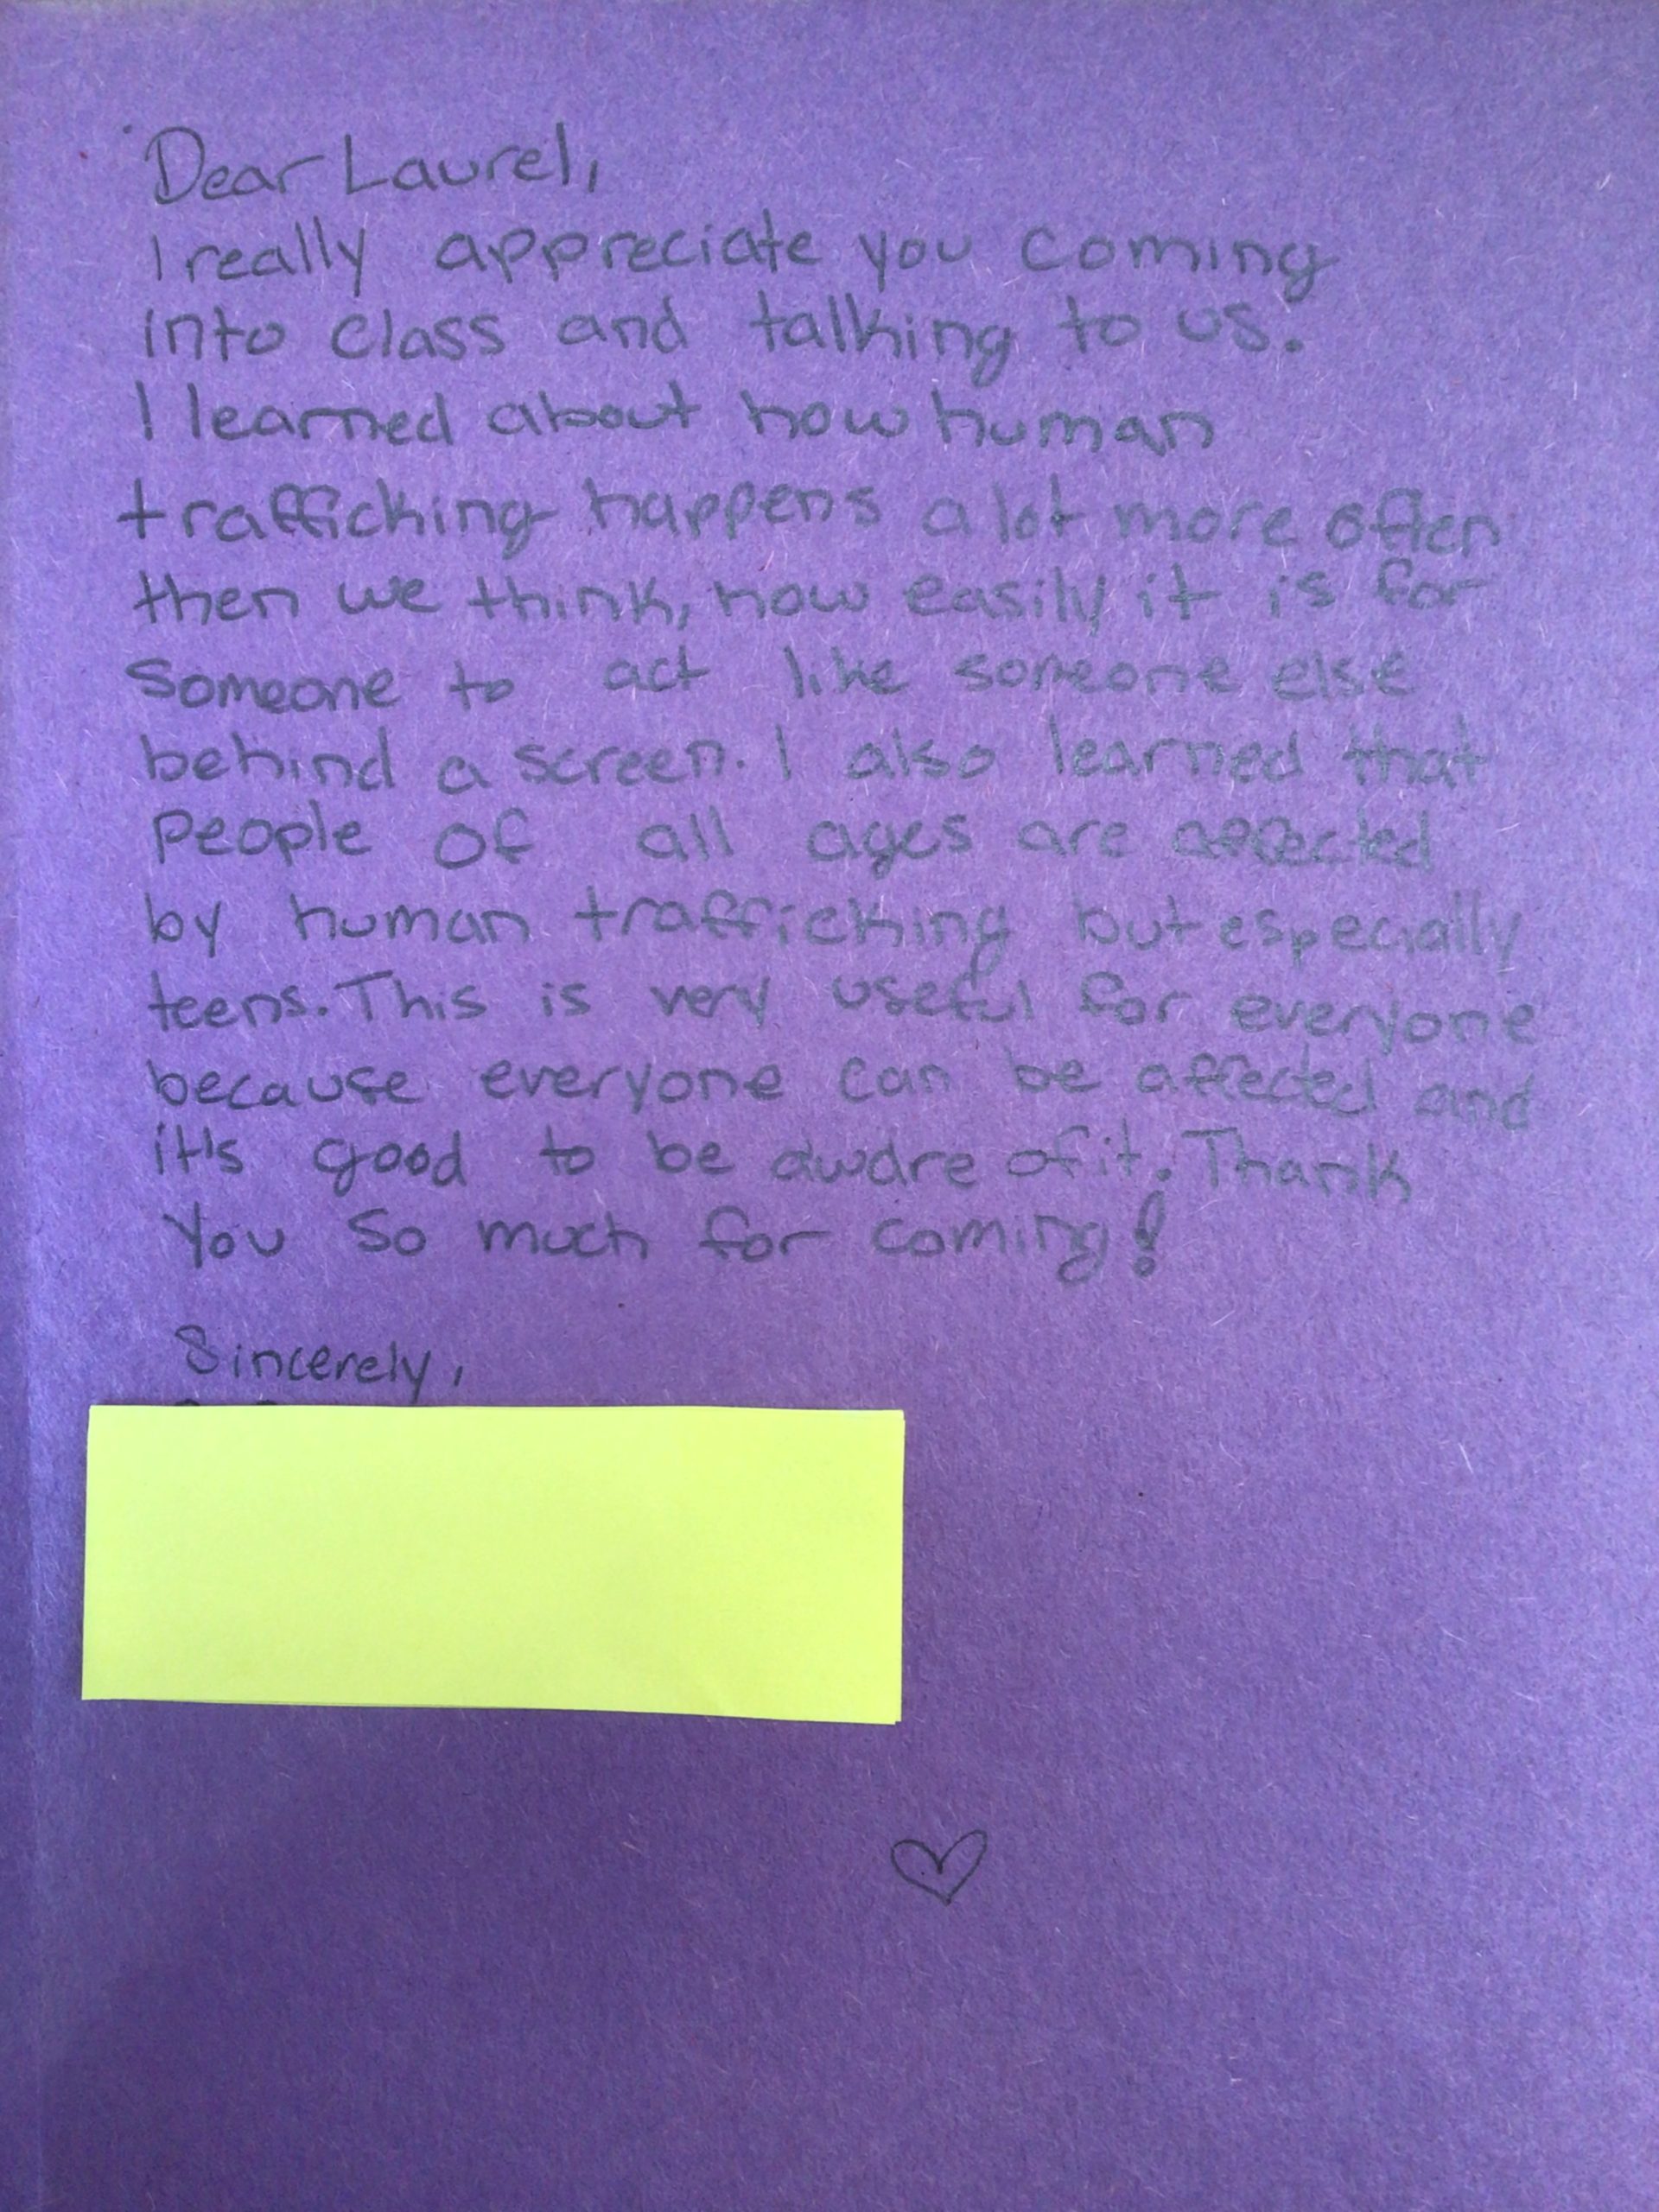 Dear Laurel,
I really appreciate you coming
into class and talking to us.
I learned about how human
trafficking happens a lot more often
then we think, how easily it is for
someone to act like someone else
behind a screen. I also learned that
people of all ages are affected
by human trafficking but especially
teens. This is very useful for everyone
because everyone can be affected and
it's good to be aware of it. Thank
You so much for coming!
Sincerely,